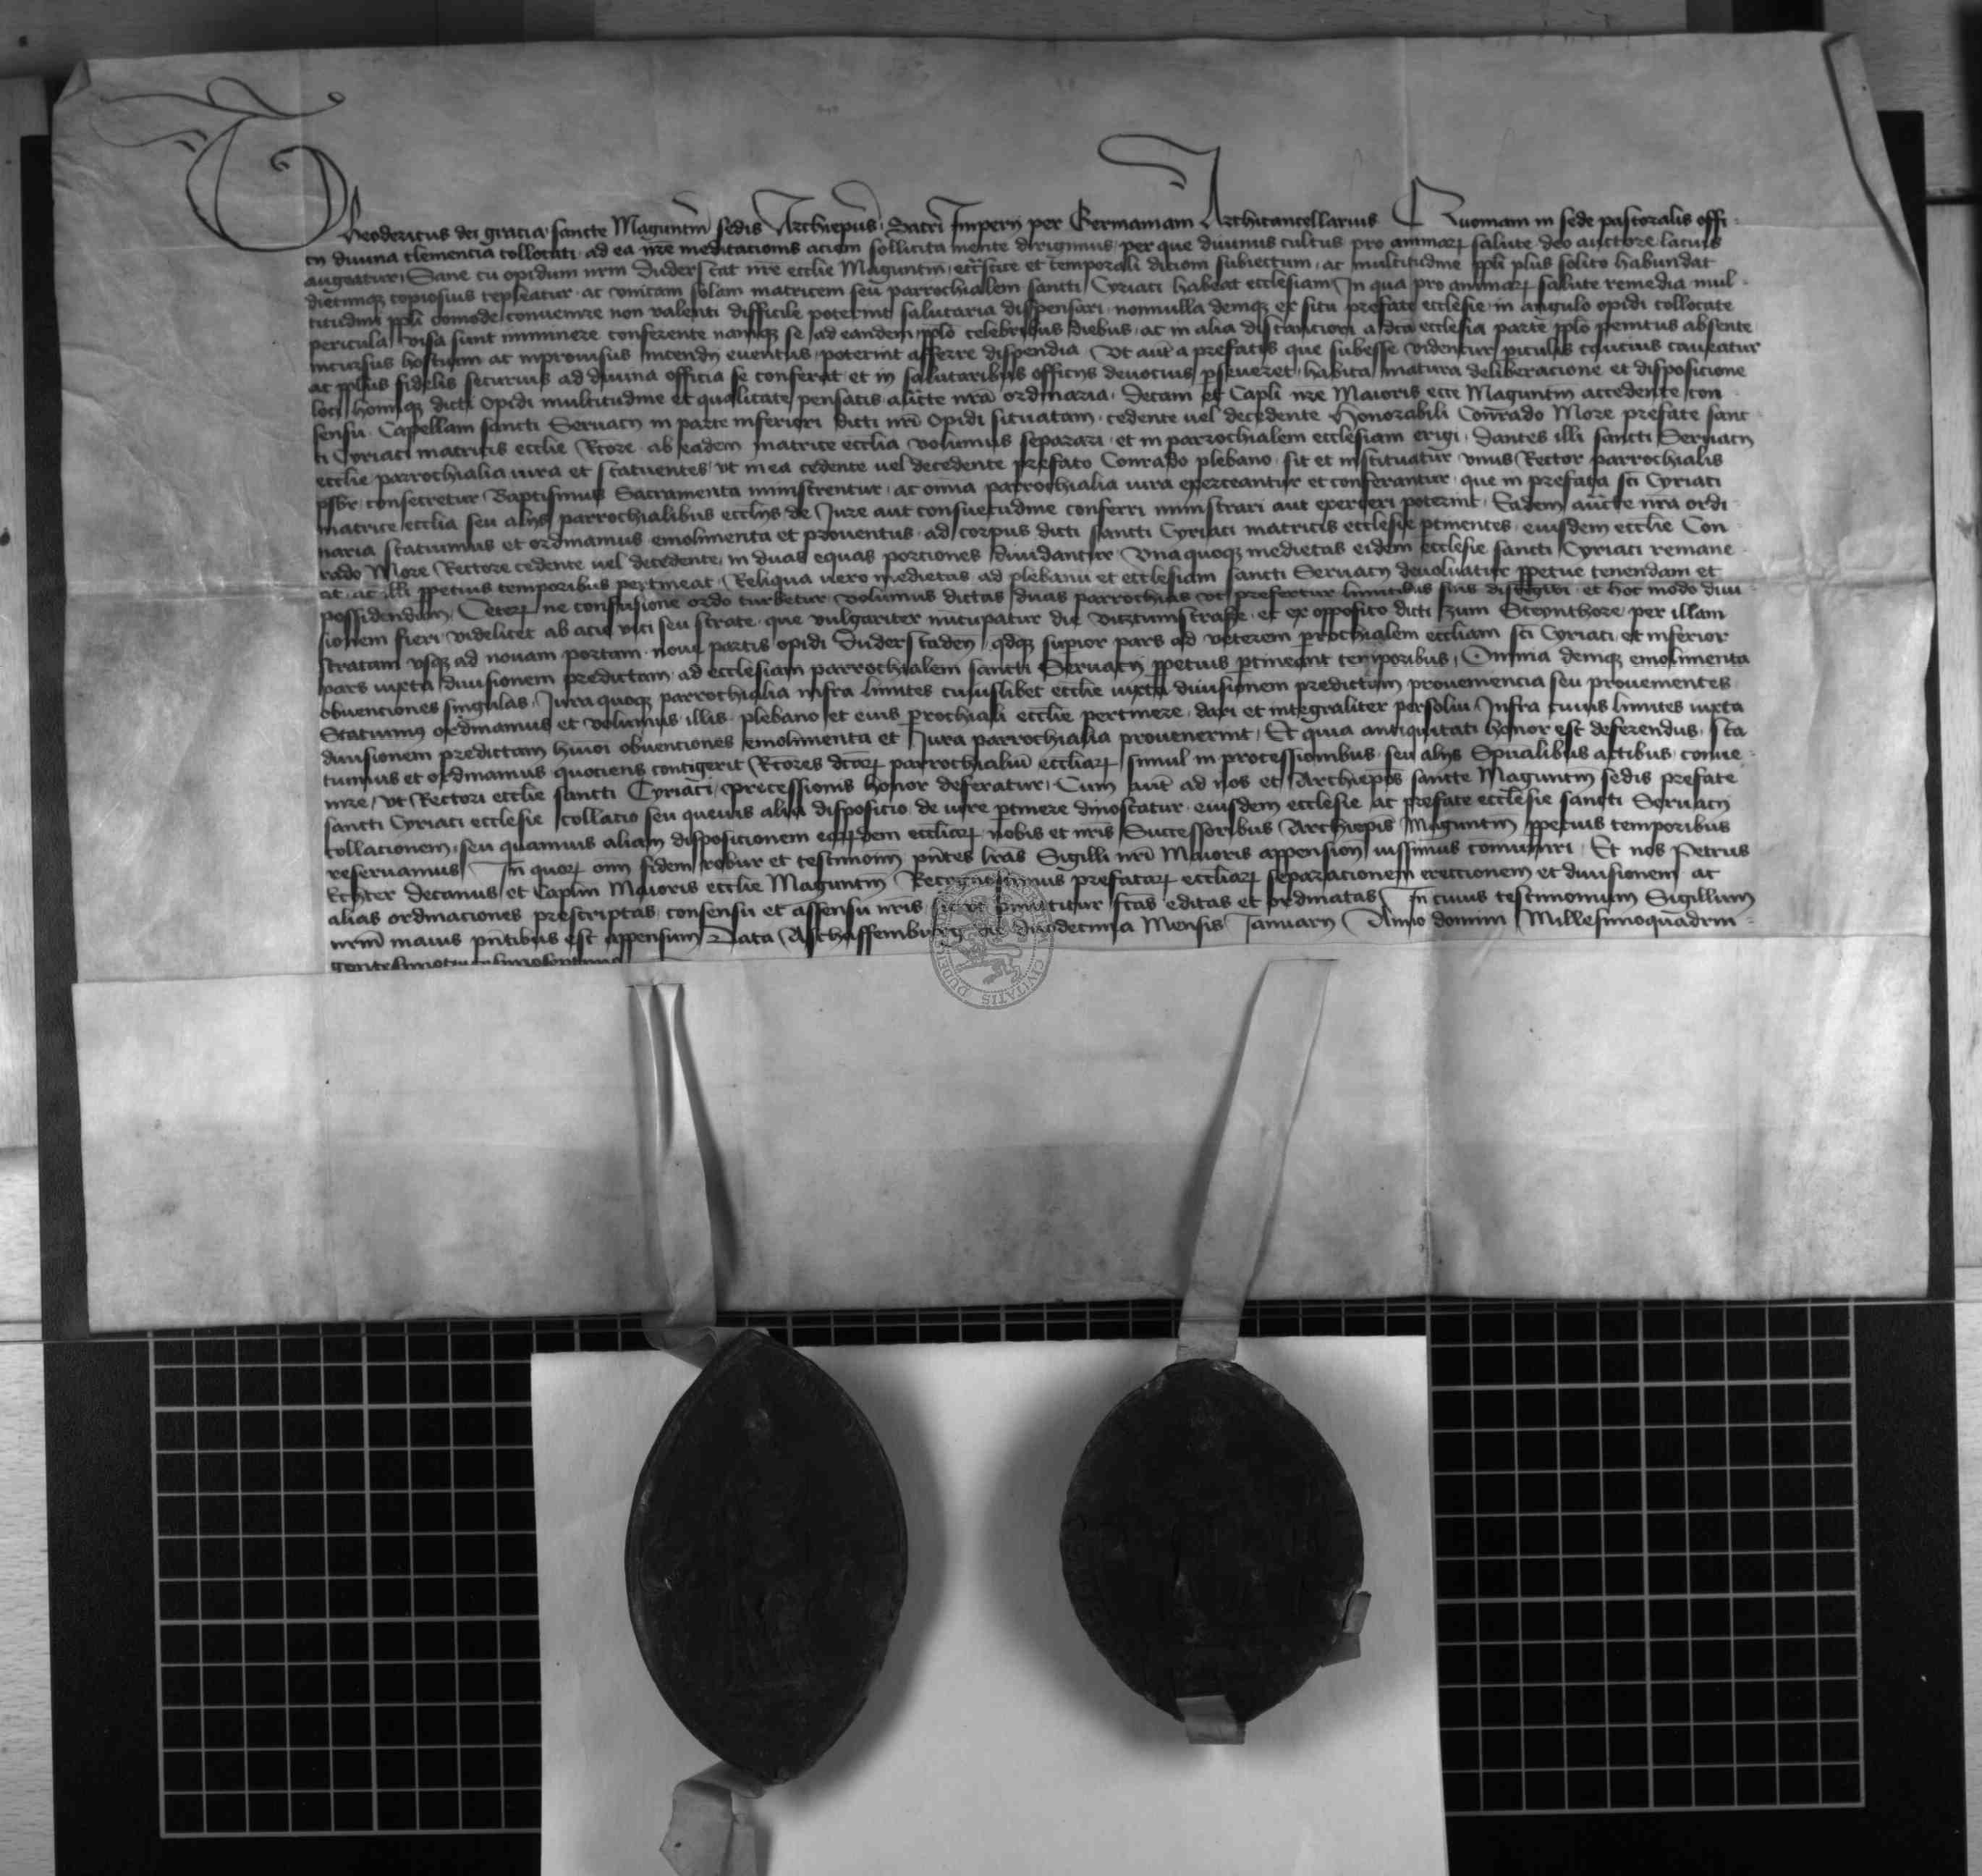 Theodericus dei gracia sancte Maguntin̄ sedis Archiep̄us Sacri Imperij per Germaniam Archicancellarius Quoniam in sede pastoralis offi
cij diuina clemencia collocati ad ea nr̄e meditacionis aciem sollicita mente dirigimus per que diuinus cultus pro animaꝝ salute deo auctore lacius
augeatur Sane cū opidum nr̄m Duderstat nr̄e ecclie Maguntin̄ et temporali dicioni subiectum ac multitudine ppl̄i plus solito habundat
dietimqꝫ copiosius repleatur ac vnicam solam matricem seu parrochialem sancti Cyriaci habeat ecclesiam In qua pro animaꝝ salute remedia mul
titudini ppl̄i comode conuenire non valenti difficile poterint salutaria dispensari nonnulla demqꝫ ex situ prefate ecclesie in angulo opidi collocate
pericula visa sunt imminere conferente namqꝫ se ad eandem ppl̄o celebribus diebus ac in alia distanciori a dc̄a ecclesia parte ppl̄o penitus absente
incursus hostium ac inprouisus incendij euentus poterint afferre dispendia Vt aut̄ a prefatis que subesse videntur piculis caucius caueatur
ac ppl̄us fidelis securius ad diuina officia se conferat et in salutaribus officijs deuocius pseueret habita matura deliberacione et disposicione
loci homīqꝫ dicti opidi multitudine et qualitate pensatis auc̄te nr̄a ordinaria Decani et Capl̄i nr̄e Maioris ecce Maguntin̄ accedente con
sensu Capellam sancti Seruacij in parte inferiori dicti nr̄i opidi situatam cedente uel decedente Honorabili Conrado More prefate sanc
ti Cyriaci matricis ecclie Rc̄ore ab eadem matrice ecclia volumus separari et in parrochialem ecclesiam erigi dantes illi sancti Seruacij
ecclie parrochialia iura et statuentes vt in ea cedente uel decedente prefato Conrado plebano sit et instituatur vnus Rector parrochialis
psb̄r consecretur Baptismus Sacramenta ministrentur ac om̄ia parrochialia iura exerceantur et conferantur que in prefata sc̄i Cyriaci
matrice ecclia seu alijs parrochialibus eccl̄ijs de Jure aut consuetudine conferri ministrari aut exerceri poterint Eadem auc̄te nr̄a ordi
naria statuimus et ordinamus emolimenta et prouentus ad corpus dicti sancti Cyriaci matricis ecclesie ptinentes eiusdem ecclie Con
rado More Rectore cedente uel decedente in duas equas porciones diuidantur Vna quoqꝫ medietas eidem ecclesie sancti Cyriaci remane
at ac illi ppetuis temporibus pertineat Reliqua uero medietas ad plebanū et ecclesiam sancti Seruacij deuoluatur ppetue tenendam et
possidendam Ceteꝝ ne confusione ordo turbetur volumus dictas duas parrochias vt prefertur limitibus suis distingwi et hoc modo diui
sionem fieri videlicet ab acie vici seu strate que vulgariter nūcupatur die vicztumstrasse et ex opposito dicti zum Steynthore per illam
stratam vsqꝫ ad nouam portam noue partis opidi Duderstaden̄ qdqꝫ supior pars ad veterem prochialem eccliam sc̄i Cyriaci et inferior
pars iuxta diuisionem predictam ad ecclesiam parrochialem sancti Seruacij ppetuis ptineant temporibus Omnia demqꝫ emolimenta
obuenciones singulas Jura quoqꝫ parrochialia infra limites cuiuslibet ecclie iuxta diuisionem predictam proueniencia seu prouenientes
Statuimus ordinamus et volumus illis plebano et eius prochiali ecclie pertinere dari et integraliter persolui Infra cuius limites iuxta
diuisionem predictam hmōi obuenciones emolimenta et Jura parrochialia prouenerint Et quia antiquitati honor est deferendus sta
tuimus et ordinamus quociens contigerit Rc̄ores dc̄aꝝ parrochialiū eccliaꝝ simul in processionibus seu alijs Spūalibus actibus conue
nire Vt Rectori ecclie sancti Cyriaci precessionis honor deferatur Cum aut̄ ad nos et Archiep̄os sancte Maguntin̄ sedis prefate
sancti Cyriaci ecclesie collacio seu queuis alia disposicio de iure ptinere dinoscatur eiusdem ecclesie ac prefate ecclesie sancti Seruacij
collacionem seu quamuis aliam disposicionem eaꝝdem eccliaꝝ nobis et nr̄is Successoribus Archiep̄is Maguntin̄ ppetuis temporibus
reseruamus In quoꝝ om̄i fidem robur et testimoniū pn̄tes lr̄as Sigilli nr̄i Maioris appension̄ iussimus comuniri Et nos Petrus
Echter Decanus et Capl̄m Maioris ecclie Maguntin̄ Recognoscimus prefataꝝ eccliaꝝ separacionem erectionem et diuisionem ac
alias ordinaciones prescriptas consensu et assensu nr̄is sicut p̄mittitur fc̄as editas et ordinatas In cuius testimonium Sigillum
nr̄m maius pn̄tibus est appensum Data Aschaffemburg die duodecima Mensis Januarij Anno domini Millesimoquadrin
gentesimo
CIVITATIS DUDER